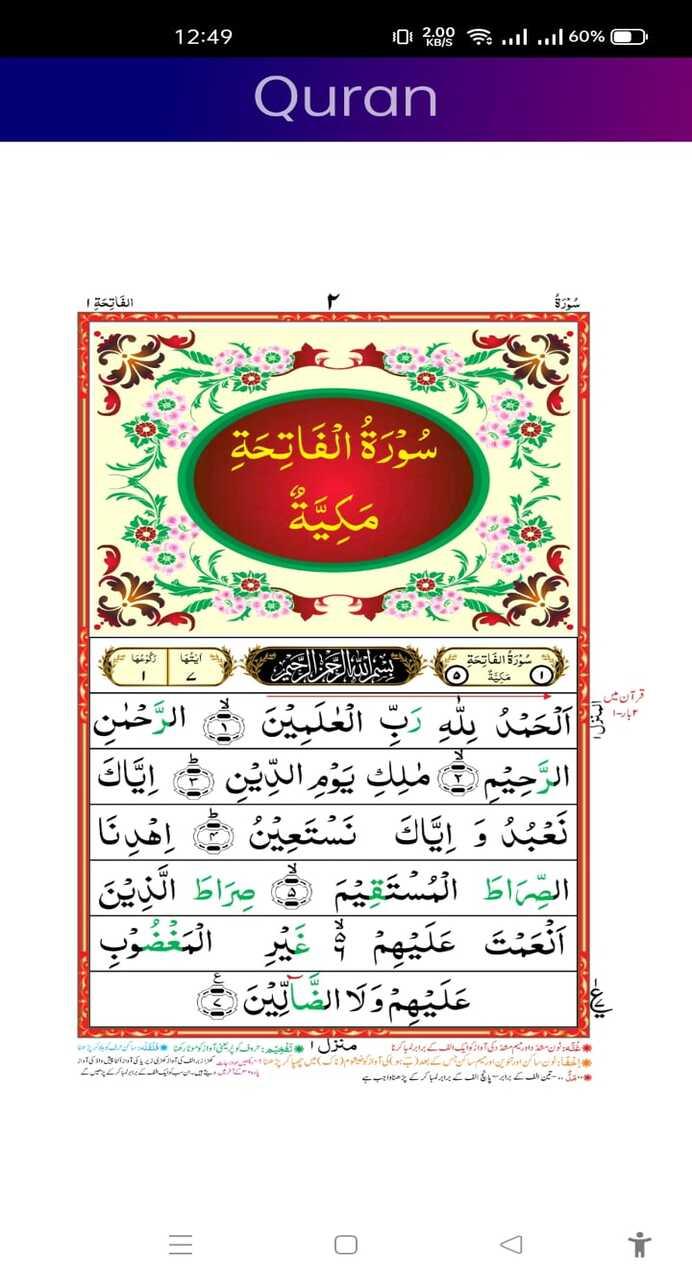 12:49 2.00 KB/S 60%
Quran
سُوْرَةُ ٢ الفَاتِحَةِ ١
سُوْرَةُ الْفَاتِحَةِ
مَكِيَّةٌ
١ سُوْرَةُ الْفَاتِحَةِ مَكِيَّةٌ ٥ بِسْمِ اللّٰهِ الرَّحْمٰنِ الرَّحِيْمِ اٰيٰتُهَا ٧ رُكُوْعُهَا ١
قرآن میں
٢ بار-١
المنزل ١
اَلْحَمْدُ لِلّٰهِ رَبِّ الْعٰلَمِيْنَ ۙ﴿١﴾ الرَّحْمٰنِ
الرَّحِيْمِ ۙ﴿٢﴾ مٰلِكِ يَوْمِ الدِّيْنِ ؕ﴿٣﴾ اِيَّاكَ
نَعْبُدُ وَ اِيَّاكَ نَسْتَعِيْنُ ؕ﴿٤﴾ اِهْدِنَا
الصِّرَاطَ الْمُسْتَقِيْمَ ۙ﴿٥﴾ صِرَاطَ الَّذِيْنَ
اَنْعَمْتَ عَلَيْهِمْ ۙ۬ ٦ غَيْرِ الْمَغْضُوْبِ
عَلَيْهِمْ وَلَا الضَّآلِّيْنَ ﴿٧﴾ ع
منزل ١